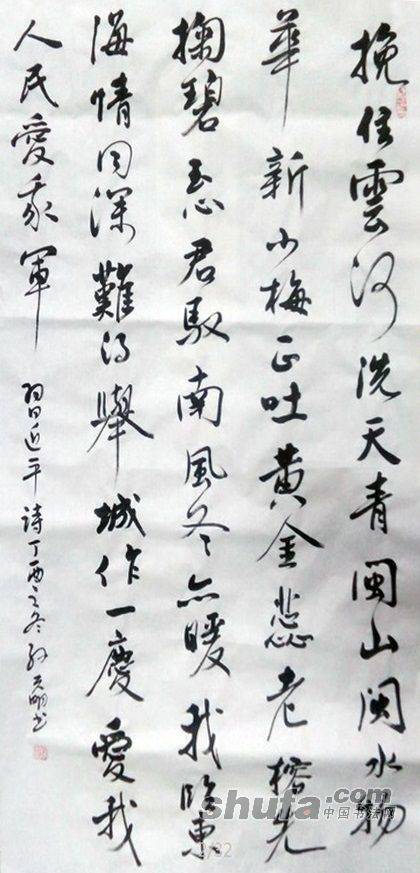 挽住雲河洗天青閩山閩水物
華新小梅正吐黄金蕊老榕先
掬碧玉心君馭南風冬亦暖我臨東
海情同深難得舉城作一慶愛我
人民愛我軍
習近平詩丁酉之冬孙明书
shufa.com
中国书法网